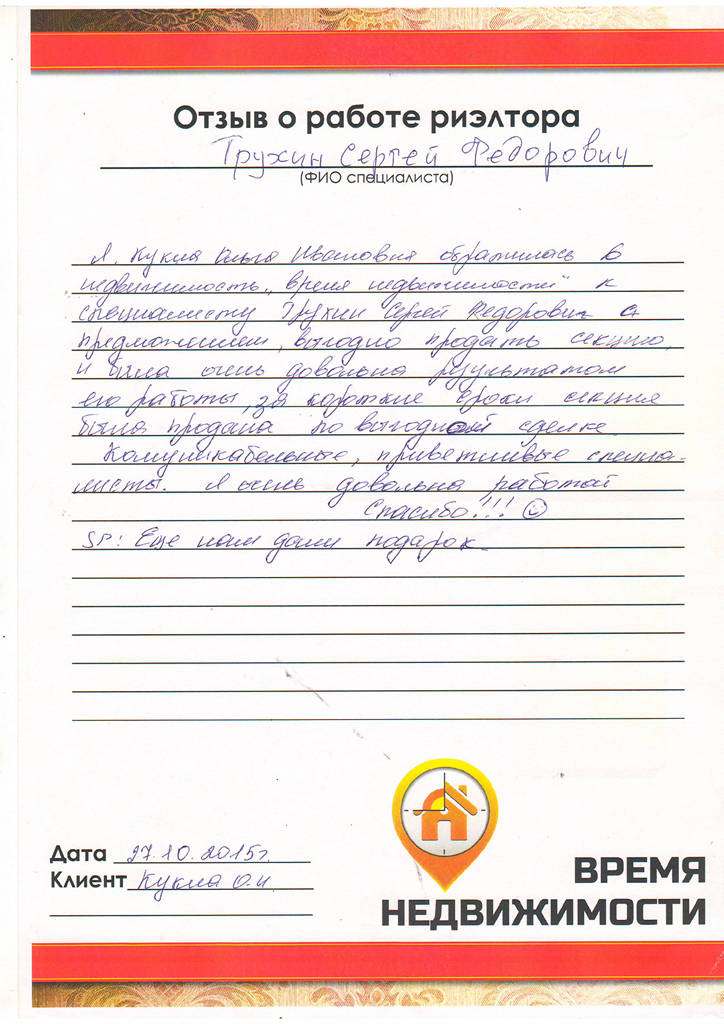 Отзыв о работе риэлтора
Трухин Сергей Федорович
(ФИО специалиста)
Я, Кукла Ольга Ивановна обратилась в
недвижимость „время недвижимости" к
специалисту Трухин Сергей Федорович с
предложением, выгодно продать секцию,
и была очень довольна результатом
его работы, за короткие сроки секция
была продана по выгодной сделке.
Комуникабельные, приветливые специа-
листы. Я очень довольна работай
Спасибо!!! ☺
SP: Еще нам дали подарок.
Дата 27.10.2015г.
Клиент Кукла О.И.
ВРЕМЯ
НЕДВИЖИМОСТИ